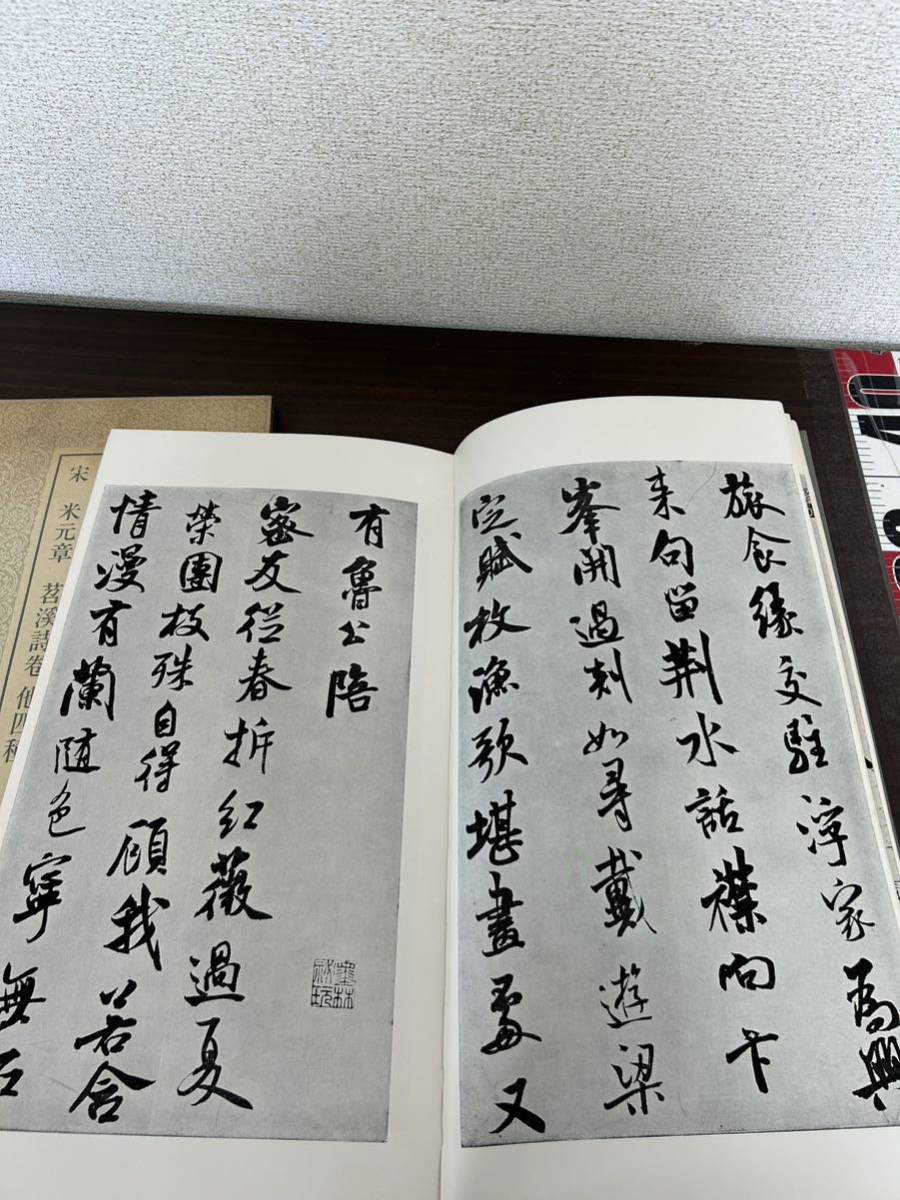 旅食緣交駐浮家為興
来句留荊水話襟向卞
峯開過剡如尋戴遊梁
定賦枚漁歌堪畫處又
有魯公陪
墨林秘玩
密友從春拆紅薇過夏
榮團枝殊自得顧我若含
情漫有蘭隨色寧無石
宋 米元章 苕溪詩卷 他四種